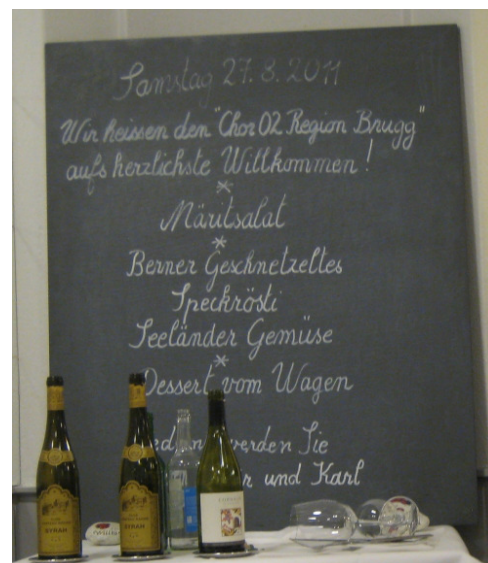 Samstag 27.8.2011
Wir heissen den "Chor 02 Region Brugg"
aufs herzlichste Willkommen!
*
Märitsalat
*
Berner Geschnetzeltes
Speckrösti
Seeländer Gemüse
*
Dessert vom Wagen
werden Sie
und Karl
SYRAH
SYRAH